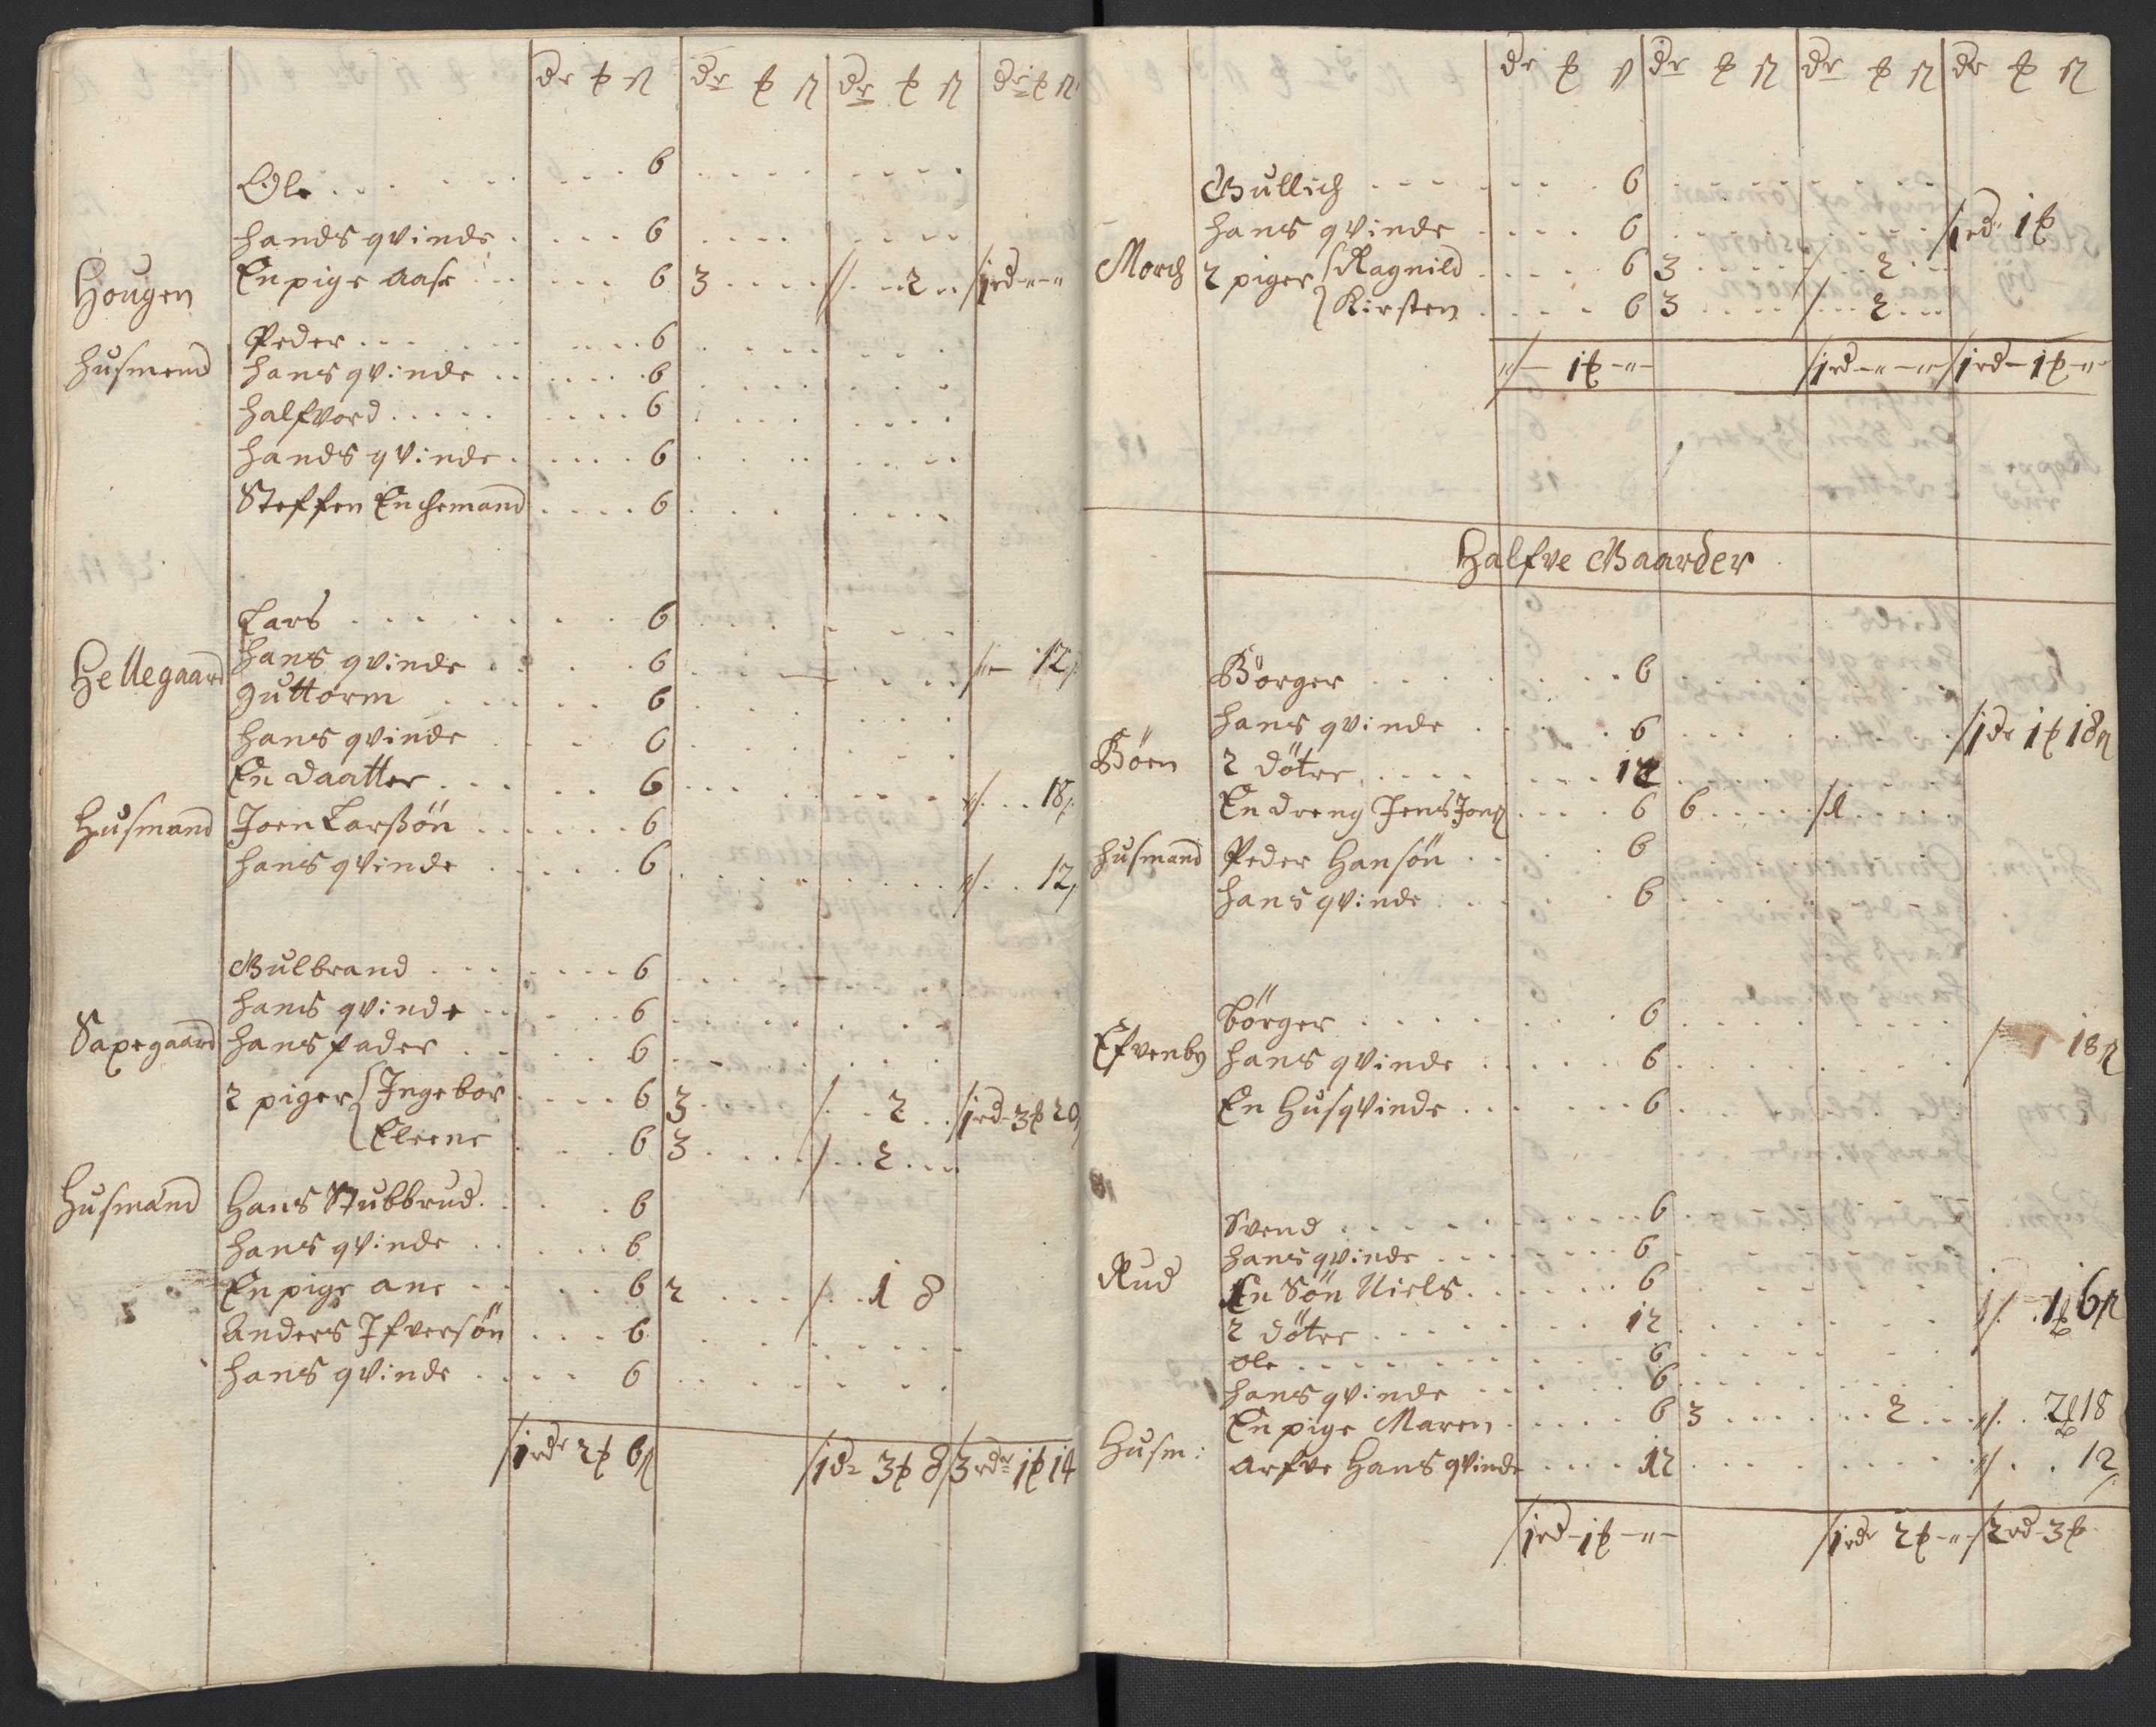 dr ₻ ß dr ₻ ß dr ₻ ß dr ₻ ß
Ole 6
hands qvinde 6
Hougen En pige Aase 6 3 2 1 rd - " - "
Peder 6
husmend hans qvinde 6
halfvord 6
hands qvinde 6
Steffen Enchemand 6
Lars 6
Hellegaard hans qvinde 6 " - 12
guttorm 6
hans qvinde 6
En daatter 6 18
Husmand Joen Larßön 6
hans qvinde 6 12
Gulbrand 6
hans qvinde 6
Sapegaard hans fader 6
2 piger Ingebor 6 3 2 1 rd - 3 ₻ 20
Eleene 6 3 2
Husmand Hans Stubbrud 6
hans qvinde 6
En pige ane 6 2 1 8
Anders Ifversön 6
hans qvinde 6
1 rdr 2 ₻ 6 ß 1 dr 3 ₻ 8 3 rdr 1 ₻ 14
dr ₻ ß dr ₻ ß dr ₻ ß dr ₻ ß
Gullich 6
hans qvinde 6 1 rd 1 ₻
Morch 2 piger Ragnild 6 3 2
Kirsten 6 3 2
" - 1 ₻ - " - 1 rd - " - " 1 rd - 1 ₻ - "
Halfve Gaarder
Börger 6
hans qvinde 6 1 dr 1 ₻ 18 ß
Böen 2 dötre 12
En dreng Jens Jonß 6 6 1
husmand Peder Hansön 6
hans qvinde 6
börger 6
Efvenby hans qvinde 6 18 ß
En Husqvinde 6
Svend 6
hans qvinde 6
Rud En Sön Niels 6 1 ₻ 6 ß
2 dötre 12
ole 6
hans qvinde 6
En pige Maren 6 3 2 2 ₻ 18
Husm: Arfve Hans qvinde 12 12
1 rd - 1 ₻ - " - 1 rdr 2 ₻ - " 2 rd - 3 ₻